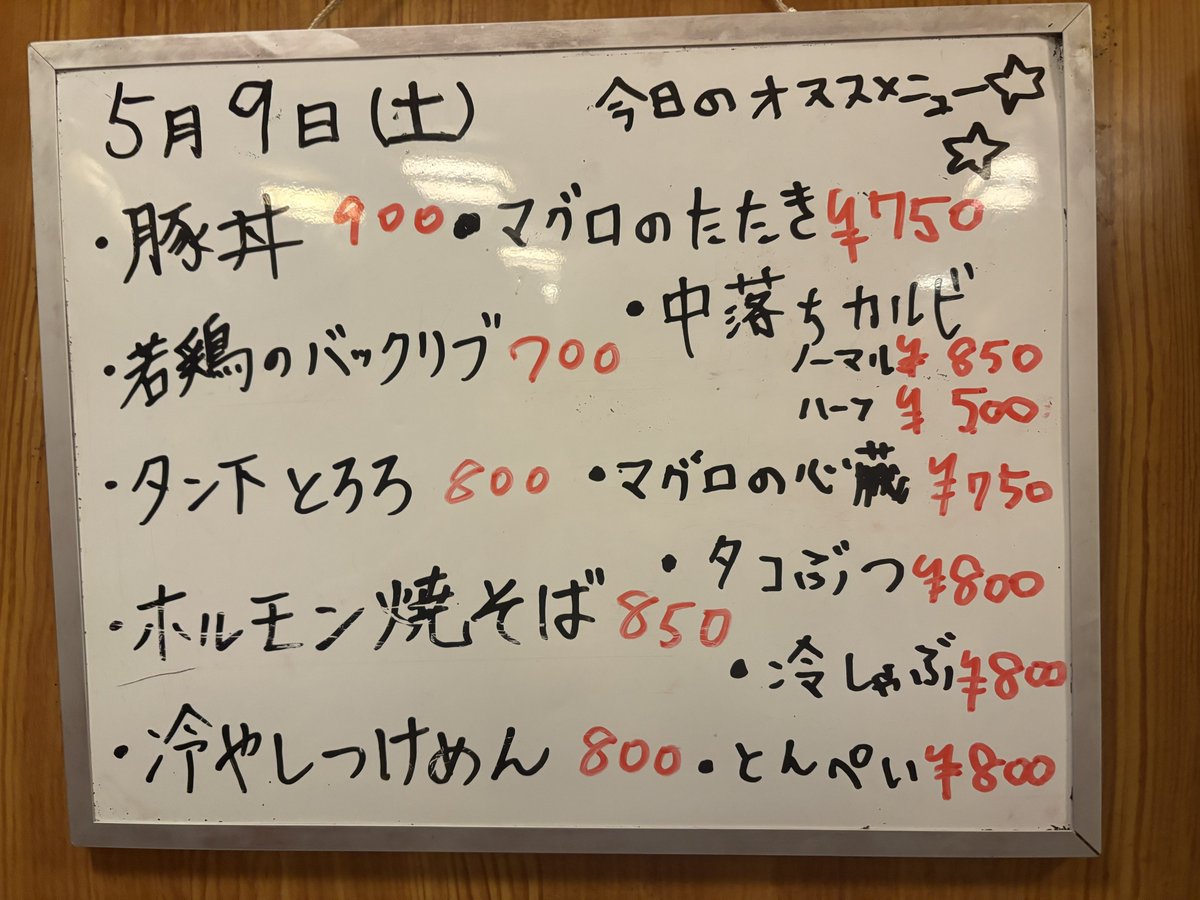 5月9日(土) 今日のオススメメニュー☆☆
・豚丼 900
・若鶏のバックリブ 700
・タン下とろろ 800
・ホルモン焼そば 850
・冷やしつけめん 800
・マグロのたたき ¥750
・中落ちカルビ
ノーマル ¥850
ハーフ ¥500
・マグロの心蔵 ¥750
・タコぶつ ¥800
・冷しゃぶ ¥800
・とんぺい ¥800